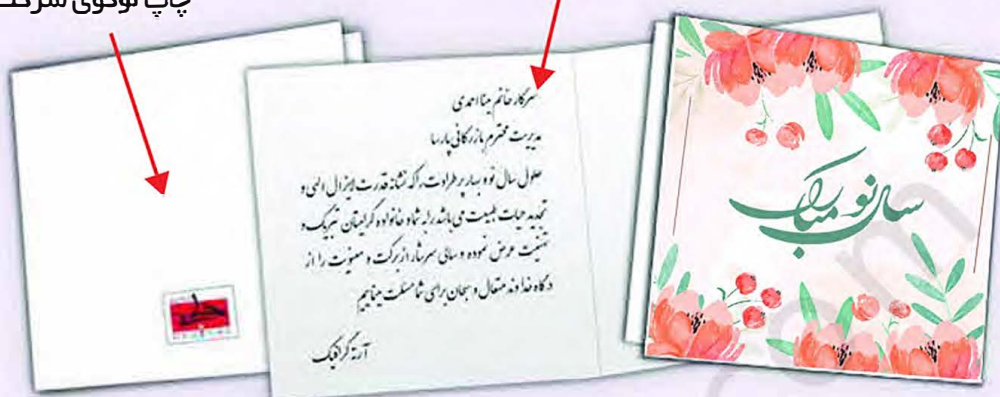 چاپ لوگوی شرکت
سرکار خانم مینا احمدی
مدیریت محترم بازرگانی پارسا
حلول سال نو و بهار پر طراوت را که نشانه قدرت لایزال الهی و
تجدید حیات طبیعت می باشد را به شما و خانواده گرامیتان تبریک و
تهنیت عرض نموده و سالی سرشار از برکت و معنویت را از
درگاه خداوند متعال و سبحان برای شما مسئلت مینماییم
آرته گرافیک
سال نو مبارک